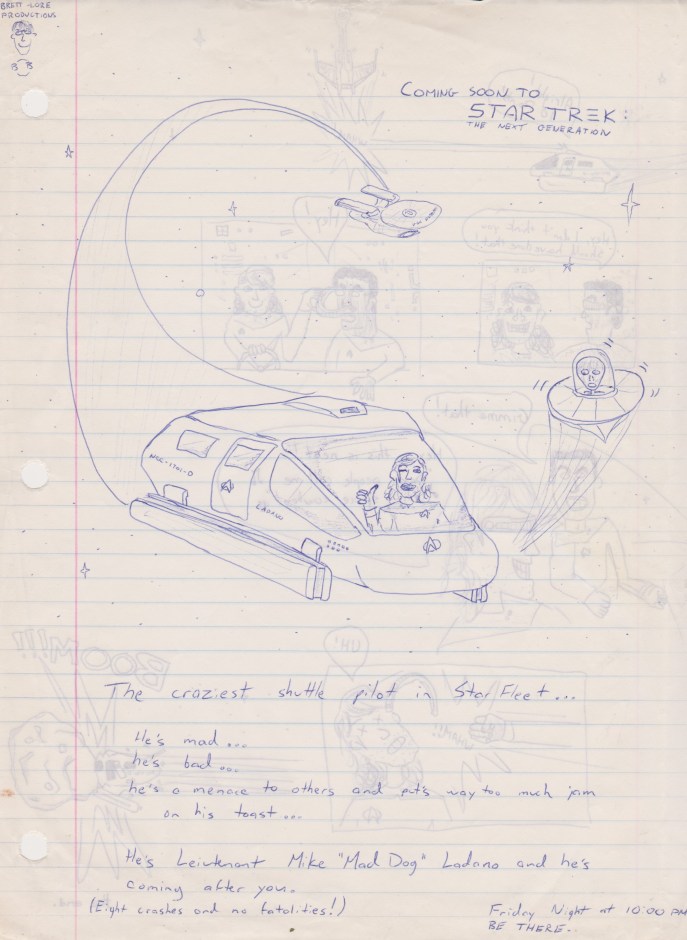 BRETT-LORE
PRODUCTIONS
COMING SOON TO
STAR TREK:
THE NEXT GENERATION
NCC-1701-D
LADANO
The craziest shuttle pilot in Star Fleet...
He's mad...
he's bad...
he's a menace to others and put's way too much jam
on his toast...
He's Leiutenant Mike "Mad Dog" Ladano and he's
coming after you.
(Eight crashes and no fatalities!)
Friday Night at 10:00 PM
BE THERE.